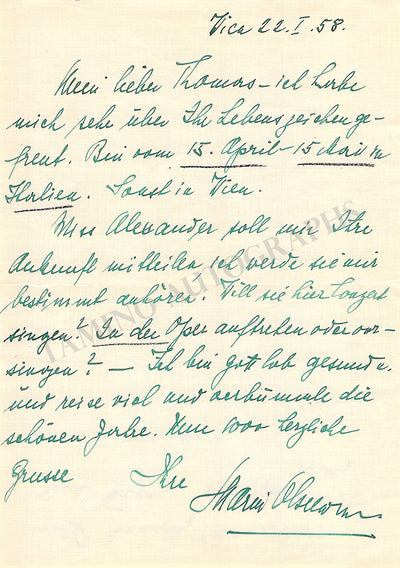 Vien 22.I.58.
Mein lieber Thomas – ich habe
mich sehr über Ihr Lebenszeichen ge-
freut. Bin vom 15. April – 15 Mai in
Italien. Sonst in Vien.
Miss Alexander soll mir Ihre
Ankunft mitteilen ich werde sie mir
bestimmt anhören. Will sie hier Conzert
singen? In der Oper auftreten oder vor-
singen? – Ich bin gott lob gesund
und reise viel und verbummle die
schönen Jahre. Nun 1000 herzliche
Grüsse Ihre
Maria
TAMINO AUTOGRAPHS